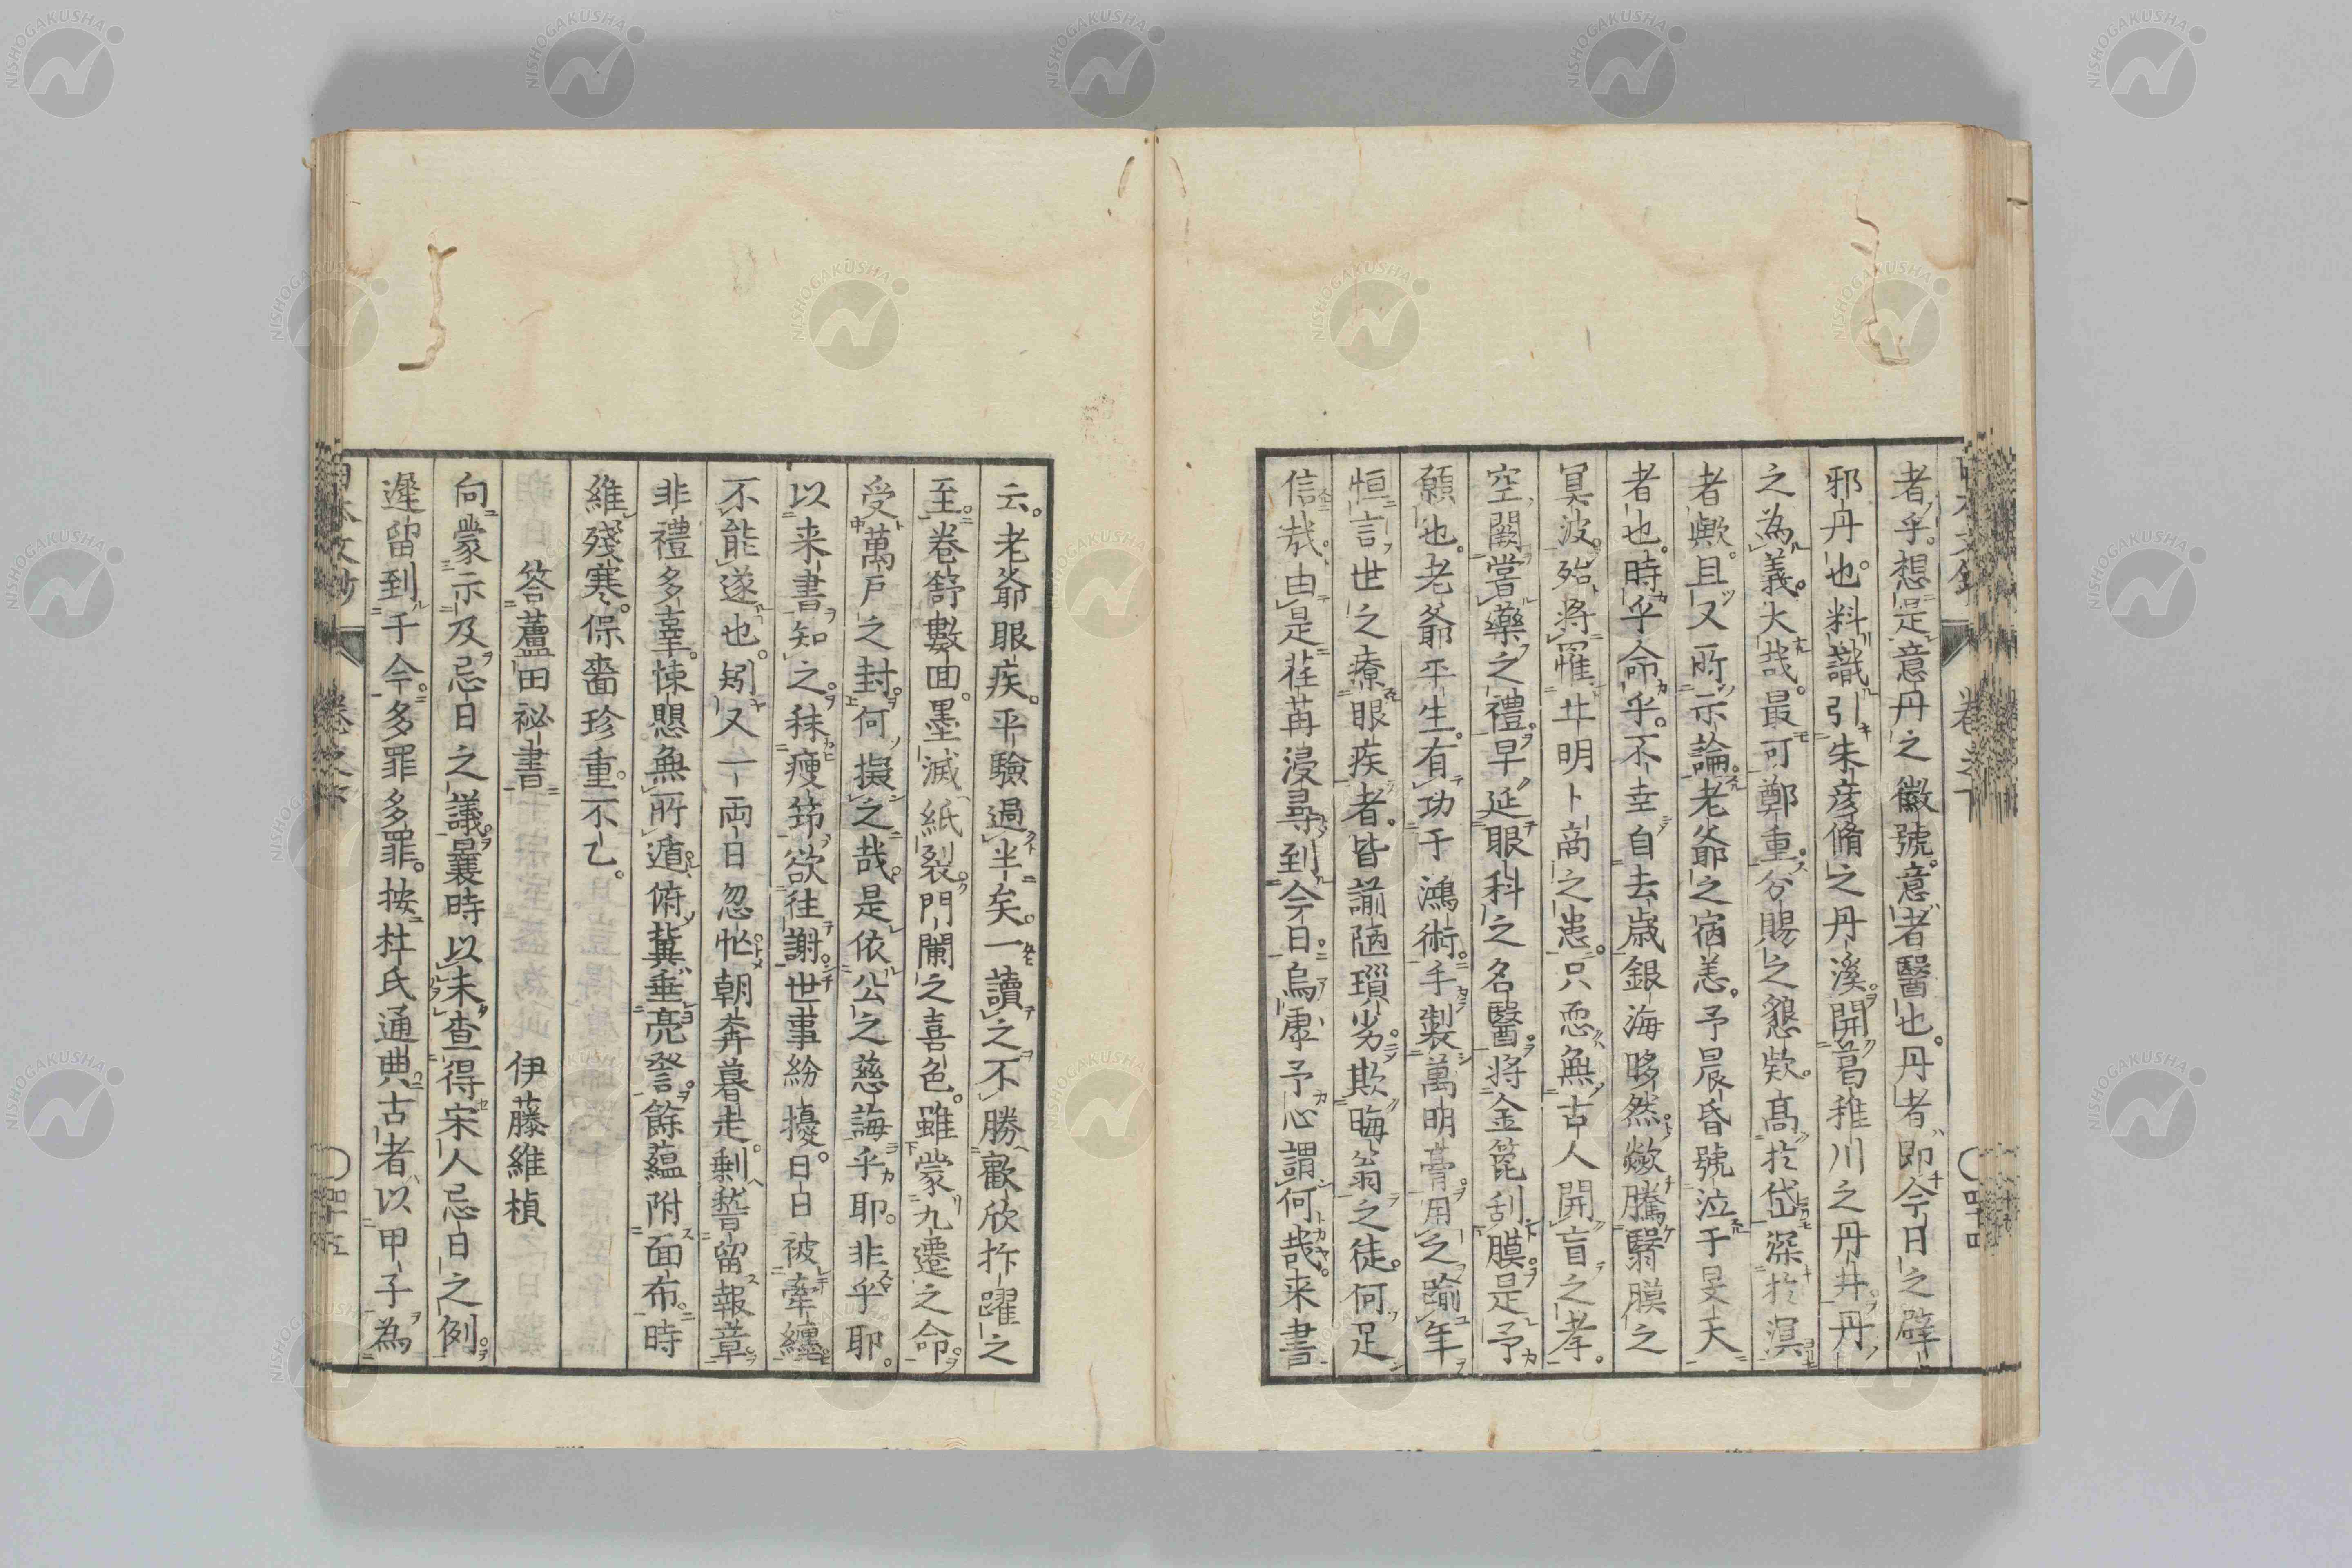 者乎。想是意丹之徽號。意者醫也。丹者即今日之辟
邪丹也。料識引朱彦脩之丹溪。開葛稚川之丹井丹
之為義。大哉。最可鄭重。分賜之懇欵。髙於岱深於溟
者歟。且又所示論。老爺之宿恙。予晨昏號泣于旻天
者也。時乎命乎。不幸自去歳銀海眵然。欻騰翳膜之
冥波。殆將罹丘明卜商之患。只恧無古人開盲之孝。
空闕嘗藥之禮。早延眼科之名醫。將金箆刮膜。是予
願也。老爺平生。有功于鴻術。手製萬明膏。用之踰年
恒言世之療眼疾者。皆謭陋瑣劣。欺晦翁之徒。何足
信哉。由是荏苒浸尋到今日。烏虖予心謂何哉。来書
云。老爺眼疾。平驗過半矣。一讀之不勝歡欣抃躍之
至。卷舒數回。墨滅紙裂。門闌之喜色。雖蒙九遷之命。
受萬戸之封。何擬之哉。是依公之慈誨乎耶。非乎耶。
以来書知之。秣瘦筇欲往謝。世事紛擾。日日被牽纏
不能遂也。矧又一兩日忽忙。朝奔暮走。剩暬留報章
非禮多辜。悚愳無所遁。俯冀垂亮詧。餘蘊附面布。時
維殘寒。保嗇珍重。不乙。
答蘆田祕書
伊藤維楨
向蒙示及忌日之議。曩時以未查得宋人忌日之例。
遲留到于今。多罪多罪。按杜氏通典古者以甲子為
卷之下
四十四
NISHOGAKUSHA